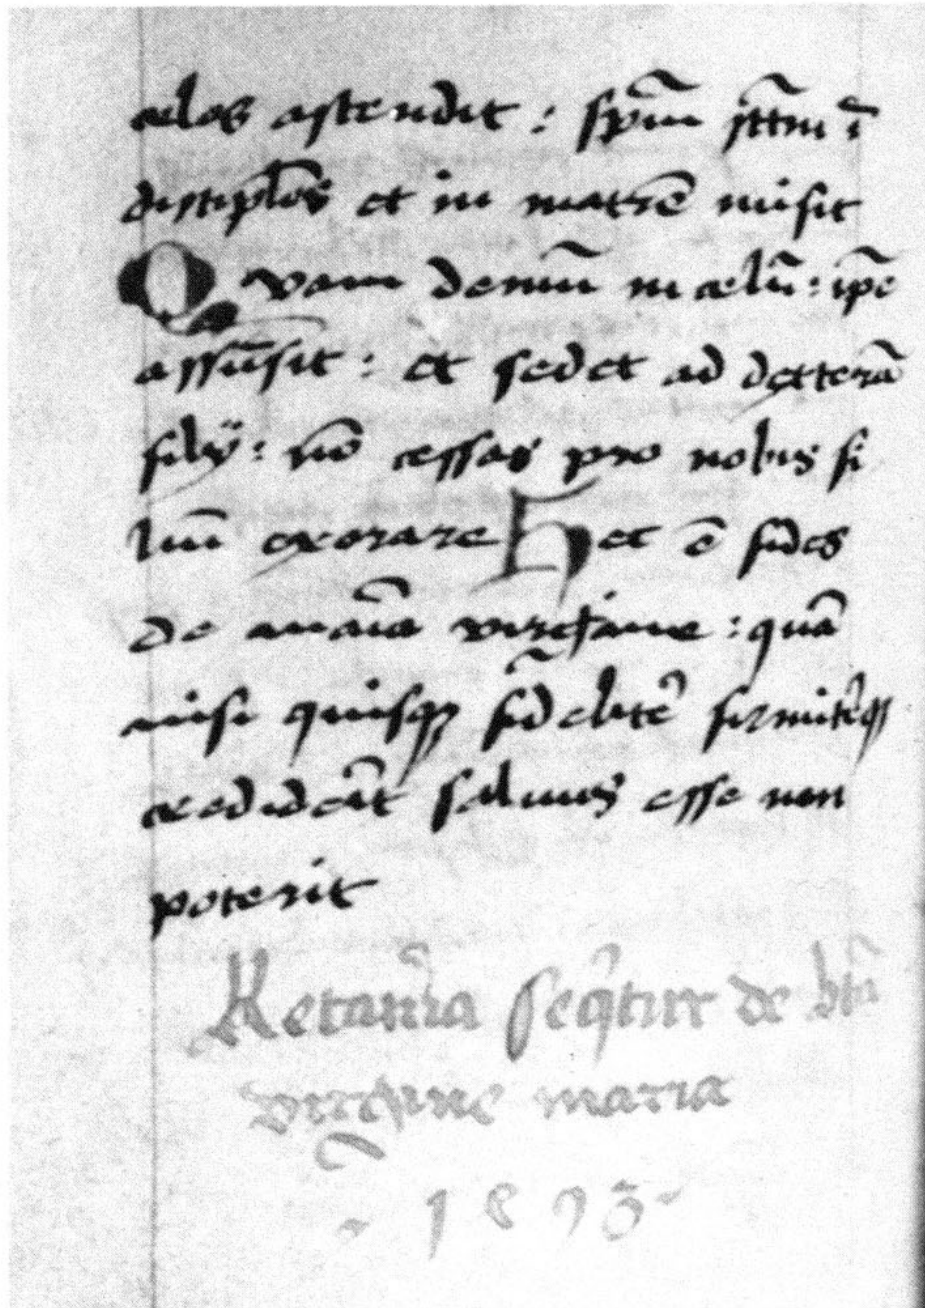 celos ascendit : sp̄m sc̄tm ī
discipl̄os et in matrē misit
Qvam demū in celū : ip̄e
assūsit : et sedet ad dexterā
filij : nō cessas pro nobis fi
liū exorare Hec ē fides
de maria virgine : quā
nisi quisqȝ fidelit̄ firmit̄qȝ
crediderit saluus esse non
poterit
Letania seqtur de btā
virgine maria